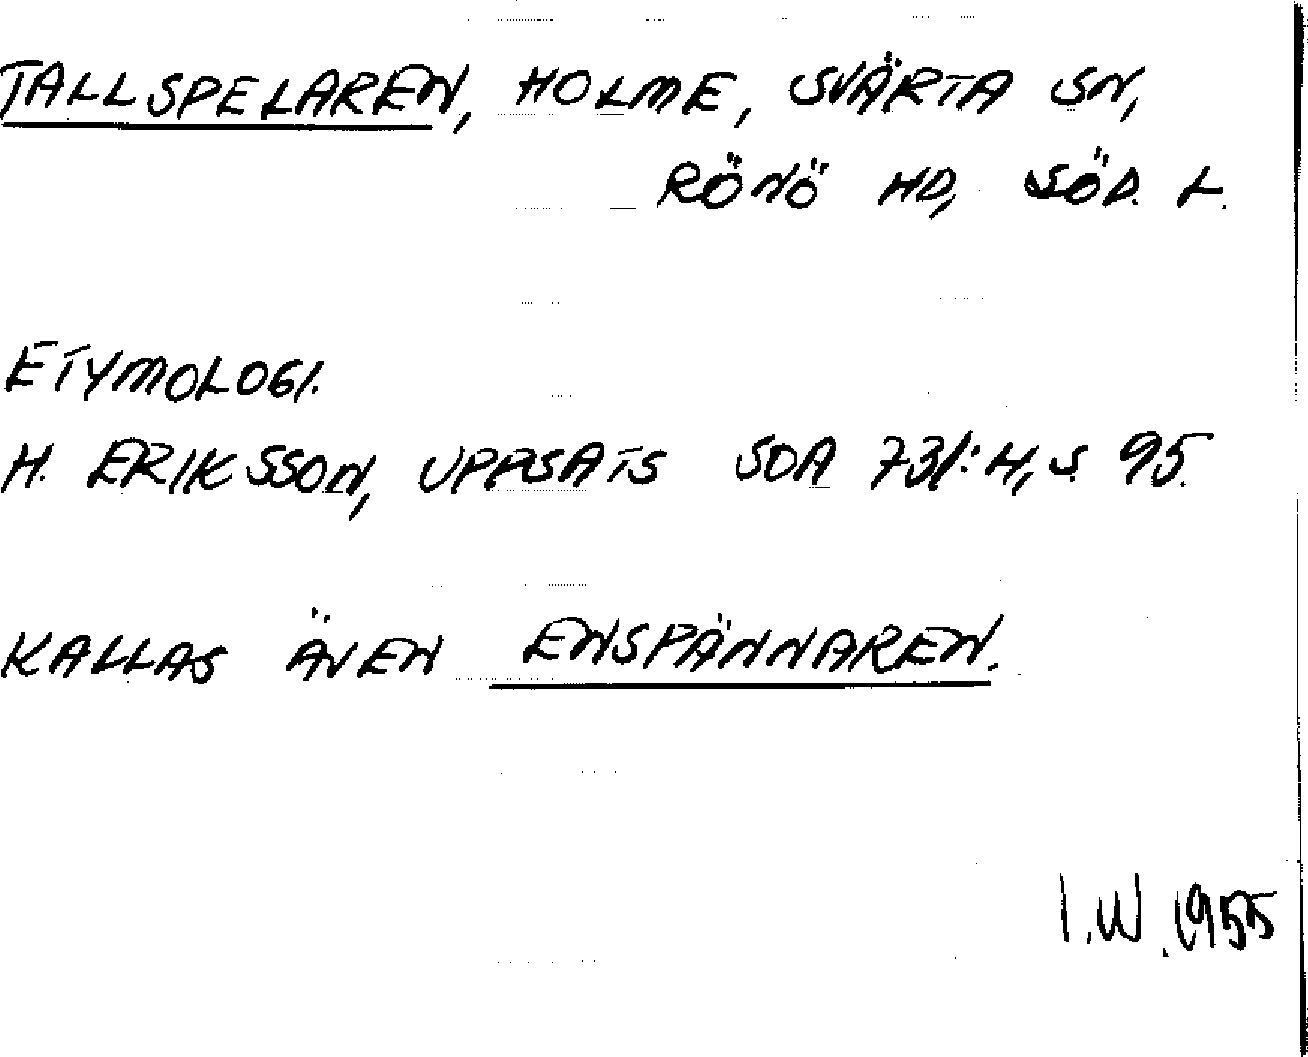 TALLSPELAREN, HOLME, SVÄRTA SN,
RÖNÖ HD, SÖD. L.
ETYMOLOGI.
H. ERIKSSON, UPPSATS SOA 731:4, S 95.
KALLAS ÄVEN ENSPÄNNAREN.
I.W. 1955